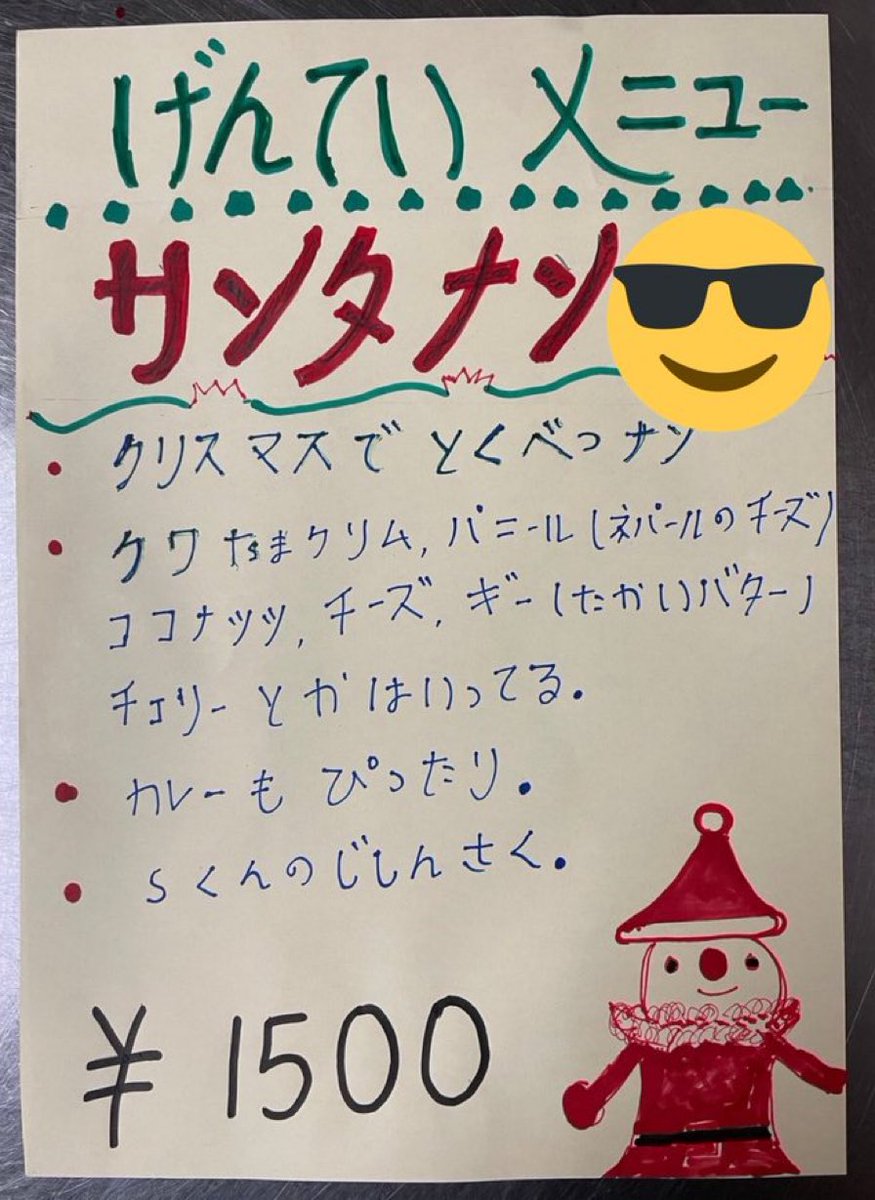 げんてい メニュー
サンタナン
・クリスマスで とくべつ ナン
・クワたまクリム, パニール(ネパールのチーズ)
ココナッツ, チーズ, ギー(たかいバター)
チェリーとかはいってる.
・カレーも ぴったり.
・Sくんのじしんさく.
¥1500